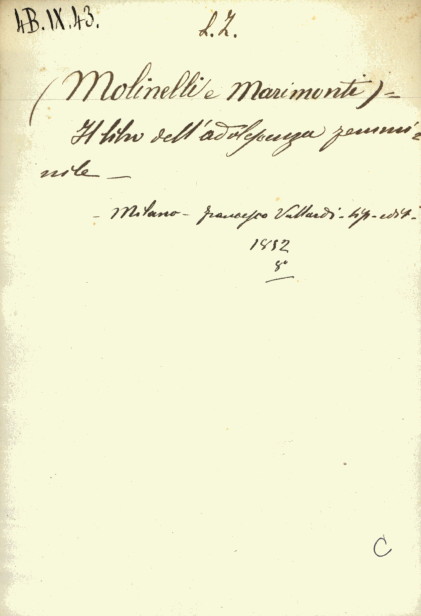 4B.IX.43.
L.Z.
(Molinelli e Marimonti) =
Il libro dell'adolescenza femmi=
nile —
- Milano - Francesco Vallardi - tip - edit -
1852
8°
C